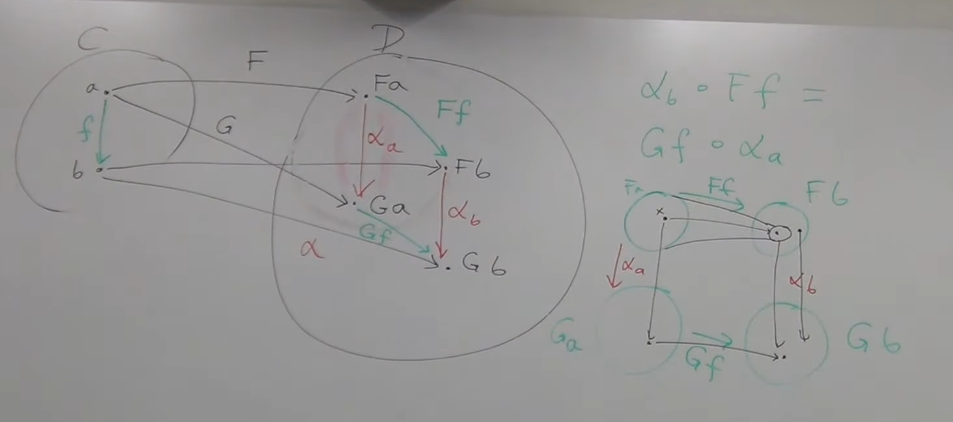 C
D
F
a
Fa
Ff
f
G
αa
b
Fb
Ga
αb
Gf
α
Gb
αb ∘ Ff =
Gf ∘ αa
Fa
Ff
Fb
x
αa
αb
Ga
Gf
Gb